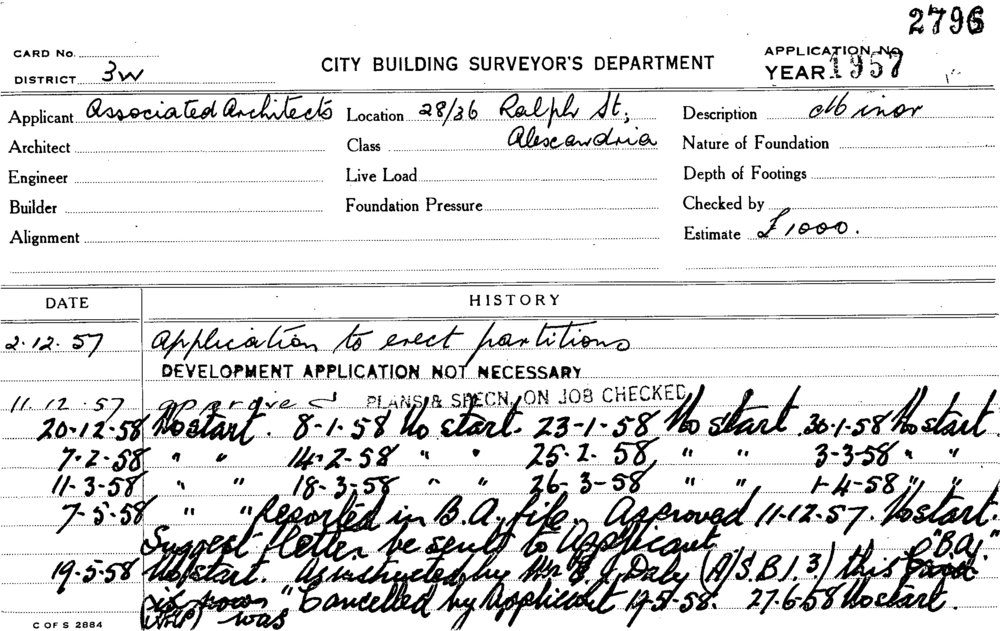 2796
CARD No.
APPLICATION No.
DISTRICT 3W
CITY BUILDING SURVEYOR'S DEPARTMENT
YEAR 1957
Applicant Associated Architects Location 28/36 Ralph St; Description Minor
Architect Class Alexandria Nature of Foundation
Engineer Live Load Depth of Footings
Builder Foundation Pressure Checked by
Alignment Estimate £1000.
DATE HISTORY
2.12.57 Application to erect partitions
DEVELOPMENT APPLICATION NOT NECESSARY
11.12.57 approved PLANS & SPECN. ON JOB CHECKED
20-12-58 No start. 8-1-58 No start. 23-1-58 No start. 30-1-58 No start
7-2-58 " " 14-2-58 " " 25-2-58, " " 3-3-58 " "
11-3-58 " " 18-3-58 " " 26-3-58 " " 1-4-58 " "
7-5-58 " " Reported in B.A. file. Approved 11-12-57. No start.
Suggest letter be sent to Applicant. "B.A."
19-5-58 No start. As instructed by Mr. E. J. Daly (A/S.B.I.3) this
"Cancelled by Applicant 19-5-58. 27.6.58 No start.
was
C OF S 2884